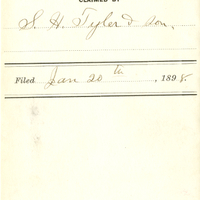 CLAIMED BY
S. H. Tyler & Son.
Filed Jan 20th, 1898.